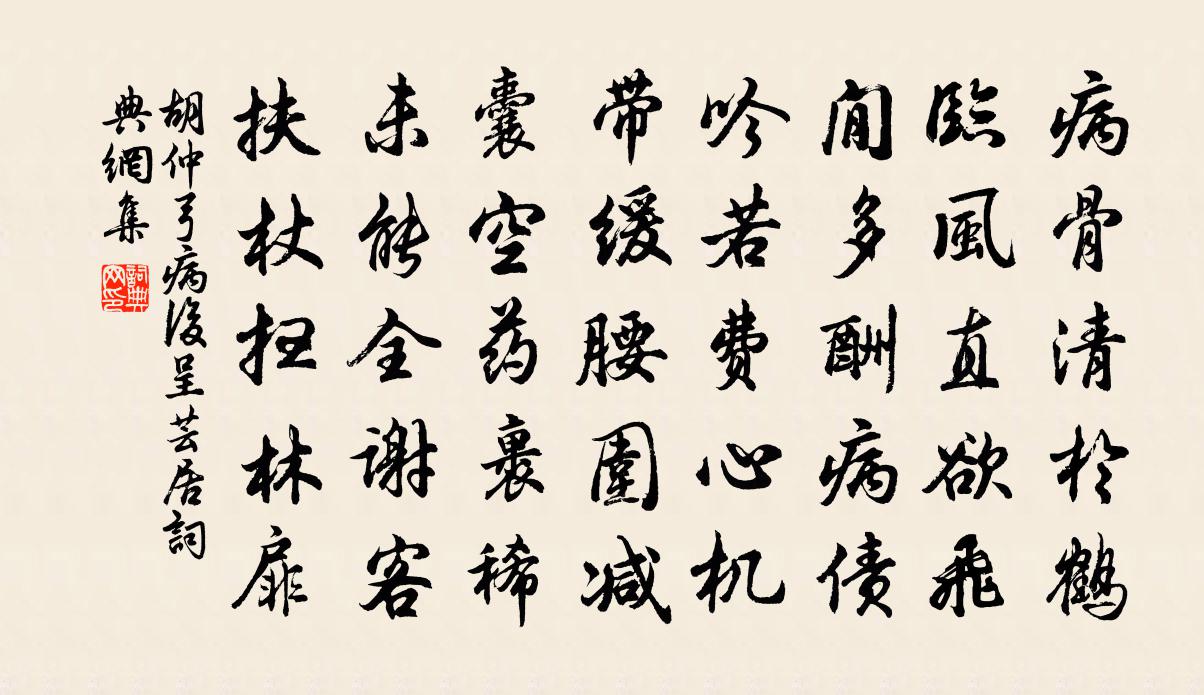 病骨清於鹤
臨風直欲飛
閒多酬病债
吟若费心机
带缓腰圍减
囊空药裹稀
未能全谢客
扶杖扫林扉
胡仲弓病後呈芸居詞
典網集
詞典
网印